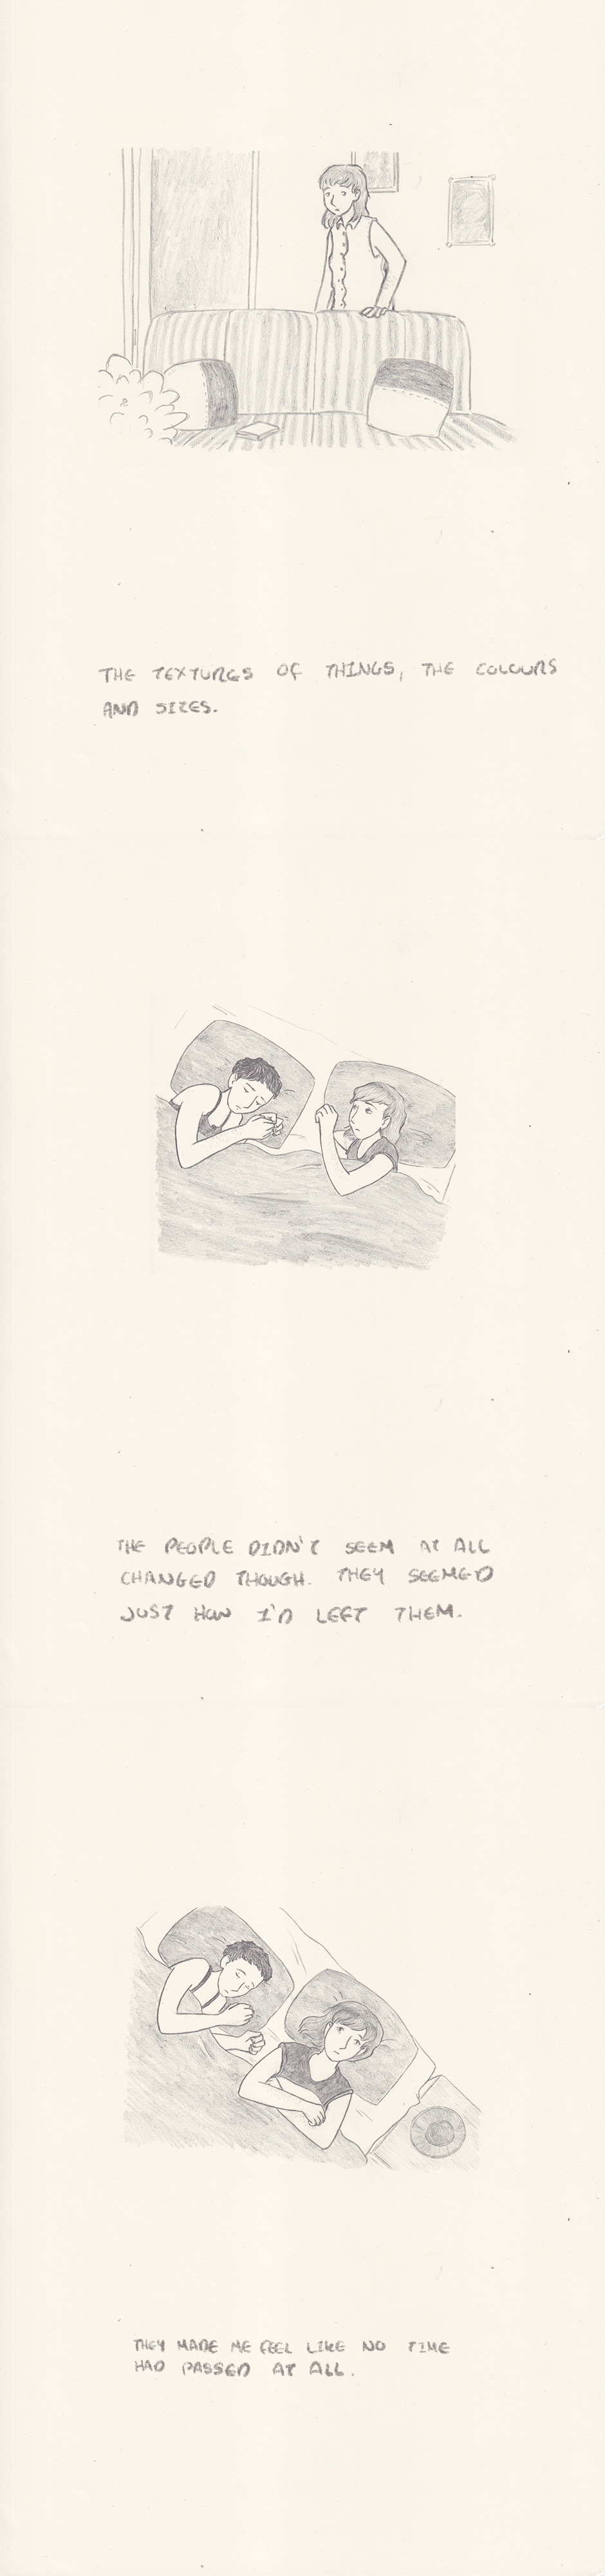 THE TEXTURES OF THINGS, THE COLOURS
AND SIZES.
THE PEOPLE DIDN'T SEEM AT ALL
CHANGED THOUGH. THEY SEEMED
JUST HOW I'D LEFT THEM.
THEY MADE ME FEEL LIKE NO TIME
HAD PASSED AT ALL.